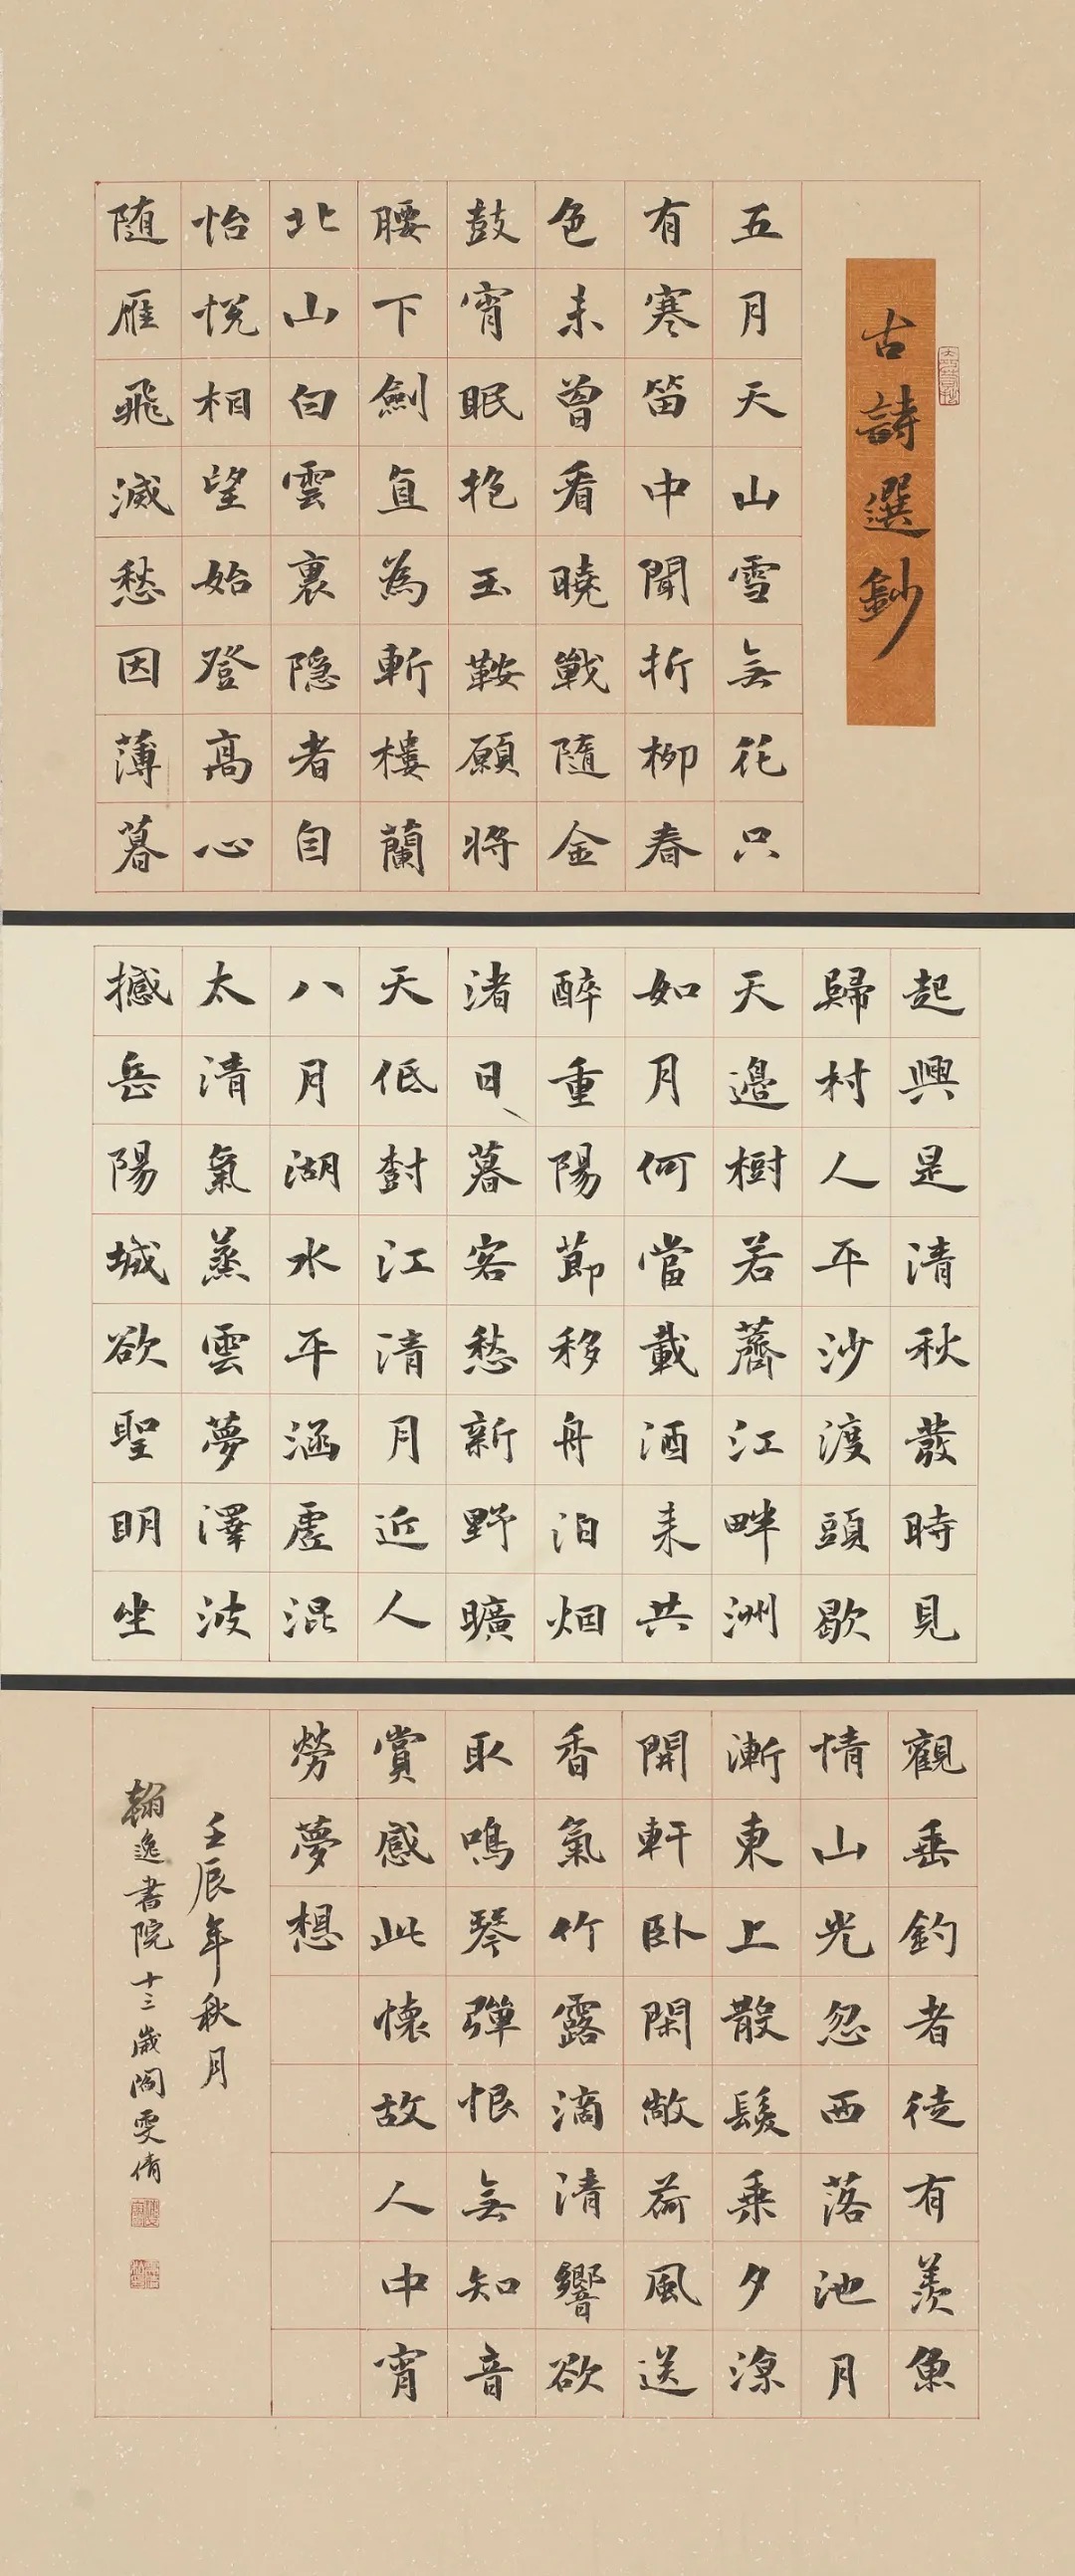 古詩選鈔
五月天山雪無花只
有寒笛中聞折柳春
色未曾看曉戰隨金
鼓宵眠抱玉鞍願將
腰下劍直為斬樓蘭
北山白雲裏隐者自
怡悅相望始登高心
随雁飛滅愁因薄暮
起興是清秋發時見
歸村人平沙渡頭歇
天邊樹若薺江畔洲
如月何當載酒来共
醉重陽節移舟泊烟
渚日暮客愁新野曠
天低樹江清月近人
八月湖水平涵虛混
太清氣蒸雲夢澤波
撼岳陽城欲聖明坐
觀垂釣者徒有羨魚
情山光忽西落池月
漸東上散髮乘夕涼
開軒卧閑敞荷風送
香氣竹露滴清響欲
取鳴琴彈恨無知音
賞感此懷故人中宵
勞夢想
壬辰年秋月
翰逸書院十三歲閻雯倩